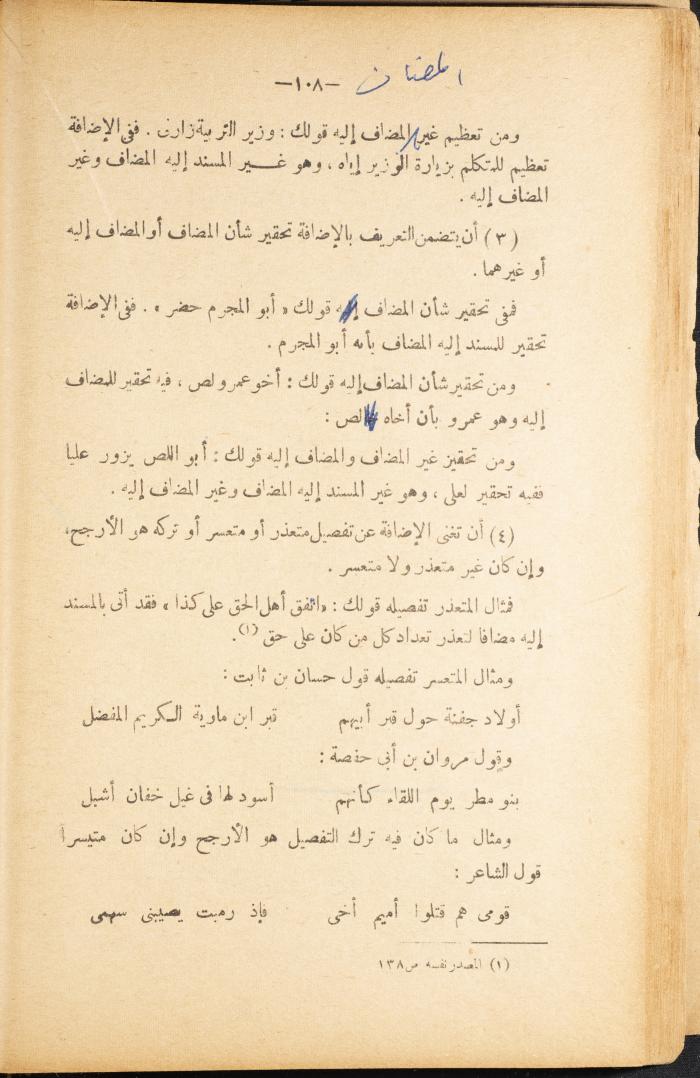 —١٠٨—
ومن تعظيم غير المضاف إليه قولك : وزير التربية زارنى . ففى الإضافة
تعظيم للمتكلم بزيارة الوزير إياه ، وهو غير المسند إليه المضاف وغير
المضاف إليه .
(٣) أن يتضمن التعريف بالإضافة تحقير شأن المضاف أو المضاف إليه
أو غيرهما .
فمى تحقير شأن المضاف قولك « أبو المجرم حضر » . ففى الإضافة
تحقير للمسند إليه المضاف بأنه أبو المجرم .
ومن تحقير شأن المضاف إليه قولك : أخو عمرو لص ، فيه تحقير للمضاف
إليه وهو عمرو بأن أخاه لص :
ومن تحقيز غير المضاف والمضاف إليه قولك : أبو اللص يزور عليا
ففيه تحقير لعلى ، وهو غير المسند إليه المضاف وغير المضاف إليه .
(٤) أن تغنى الإضافة عن تفصيل متعذر أو متعسر أو تركه هو الأرجح،
وإن كان غير متعذر ولا متعسر .
فمثال المتعذر تفصيله قولك : « اتفق أهل الحق على كذا » فقد أتى بالمسند
إليه مضافا لتعذر تعداد كل من كان على حق (١).
ومثال المتعسر تفصيله قول حسان بن ثابت :
أولاد جفنة حول قبر أبيهم قبر ابن مارية الكريم المفضل
وقول مروان بن أبى حفصة :
بنو مطر يوم اللقاء كأنهم أسود لها فى غيل خفان أشبل
ومثال ما كان فيه ترك التفصيل هو الأرجح وإن كان متيسرا
قول الشاعر :
قومى هم قتلوا أميم أخى فإذ رميت يصيبنى سهمى
(١) المصدر نفسه ص ١٣٨